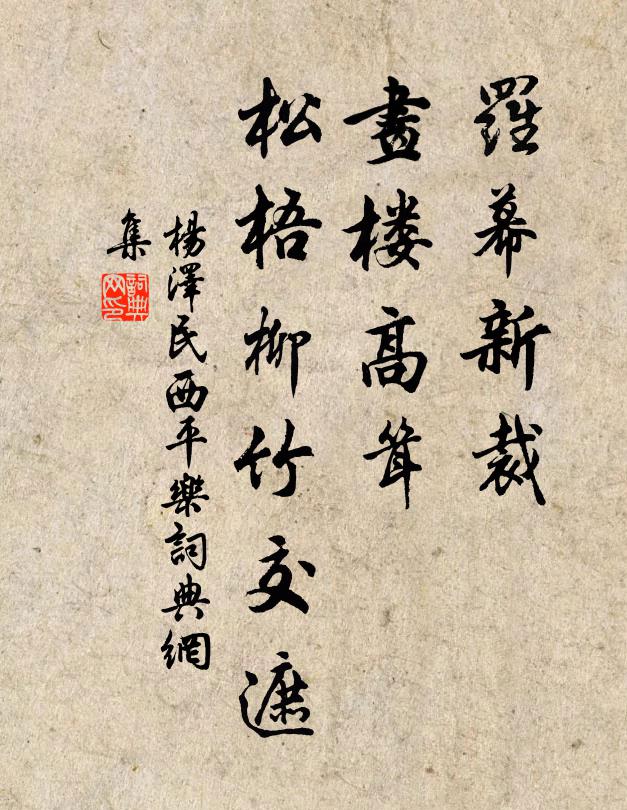 羅幕新裁
畫楼高耸
松梧柳竹交遮
楊澤民西平樂詞典網
集
詞典
网印